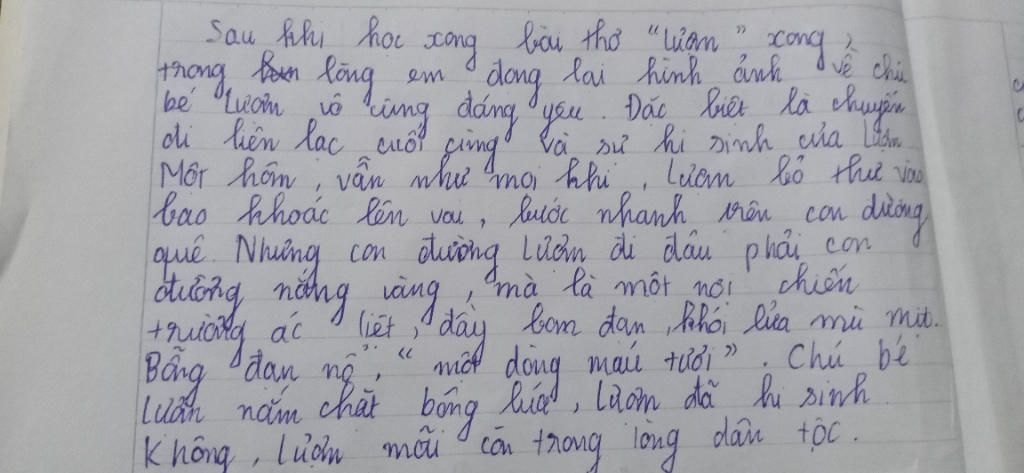 Sau khi học xong bài thơ "Lượm" xong,
trong lòng em đọng lại hình ảnh về chú
bé Lượm vô cùng đáng yêu. Đặc biệt là chuyến
đi liên lạc cuối cùng và sự hi sinh của Lượm
Một hôm, vẫn như mọi khi, Lượm bỏ thư vào
bao khoác lên vai, bước nhanh trên con đường
quê. Nhưng con đường Lượm đi đâu phải con
đường nắng vàng, mà là một nơi chiến
trường ác liệt, đầy bom đạn, khói lửa mù mịt.
Bỗng đạn nổ, "một dòng máu tươi". Chú bé
Lượm nắm chặt bông lúa, Lượm đã hi sinh
Không, Lượm mãi còn trong lòng dân tộc.